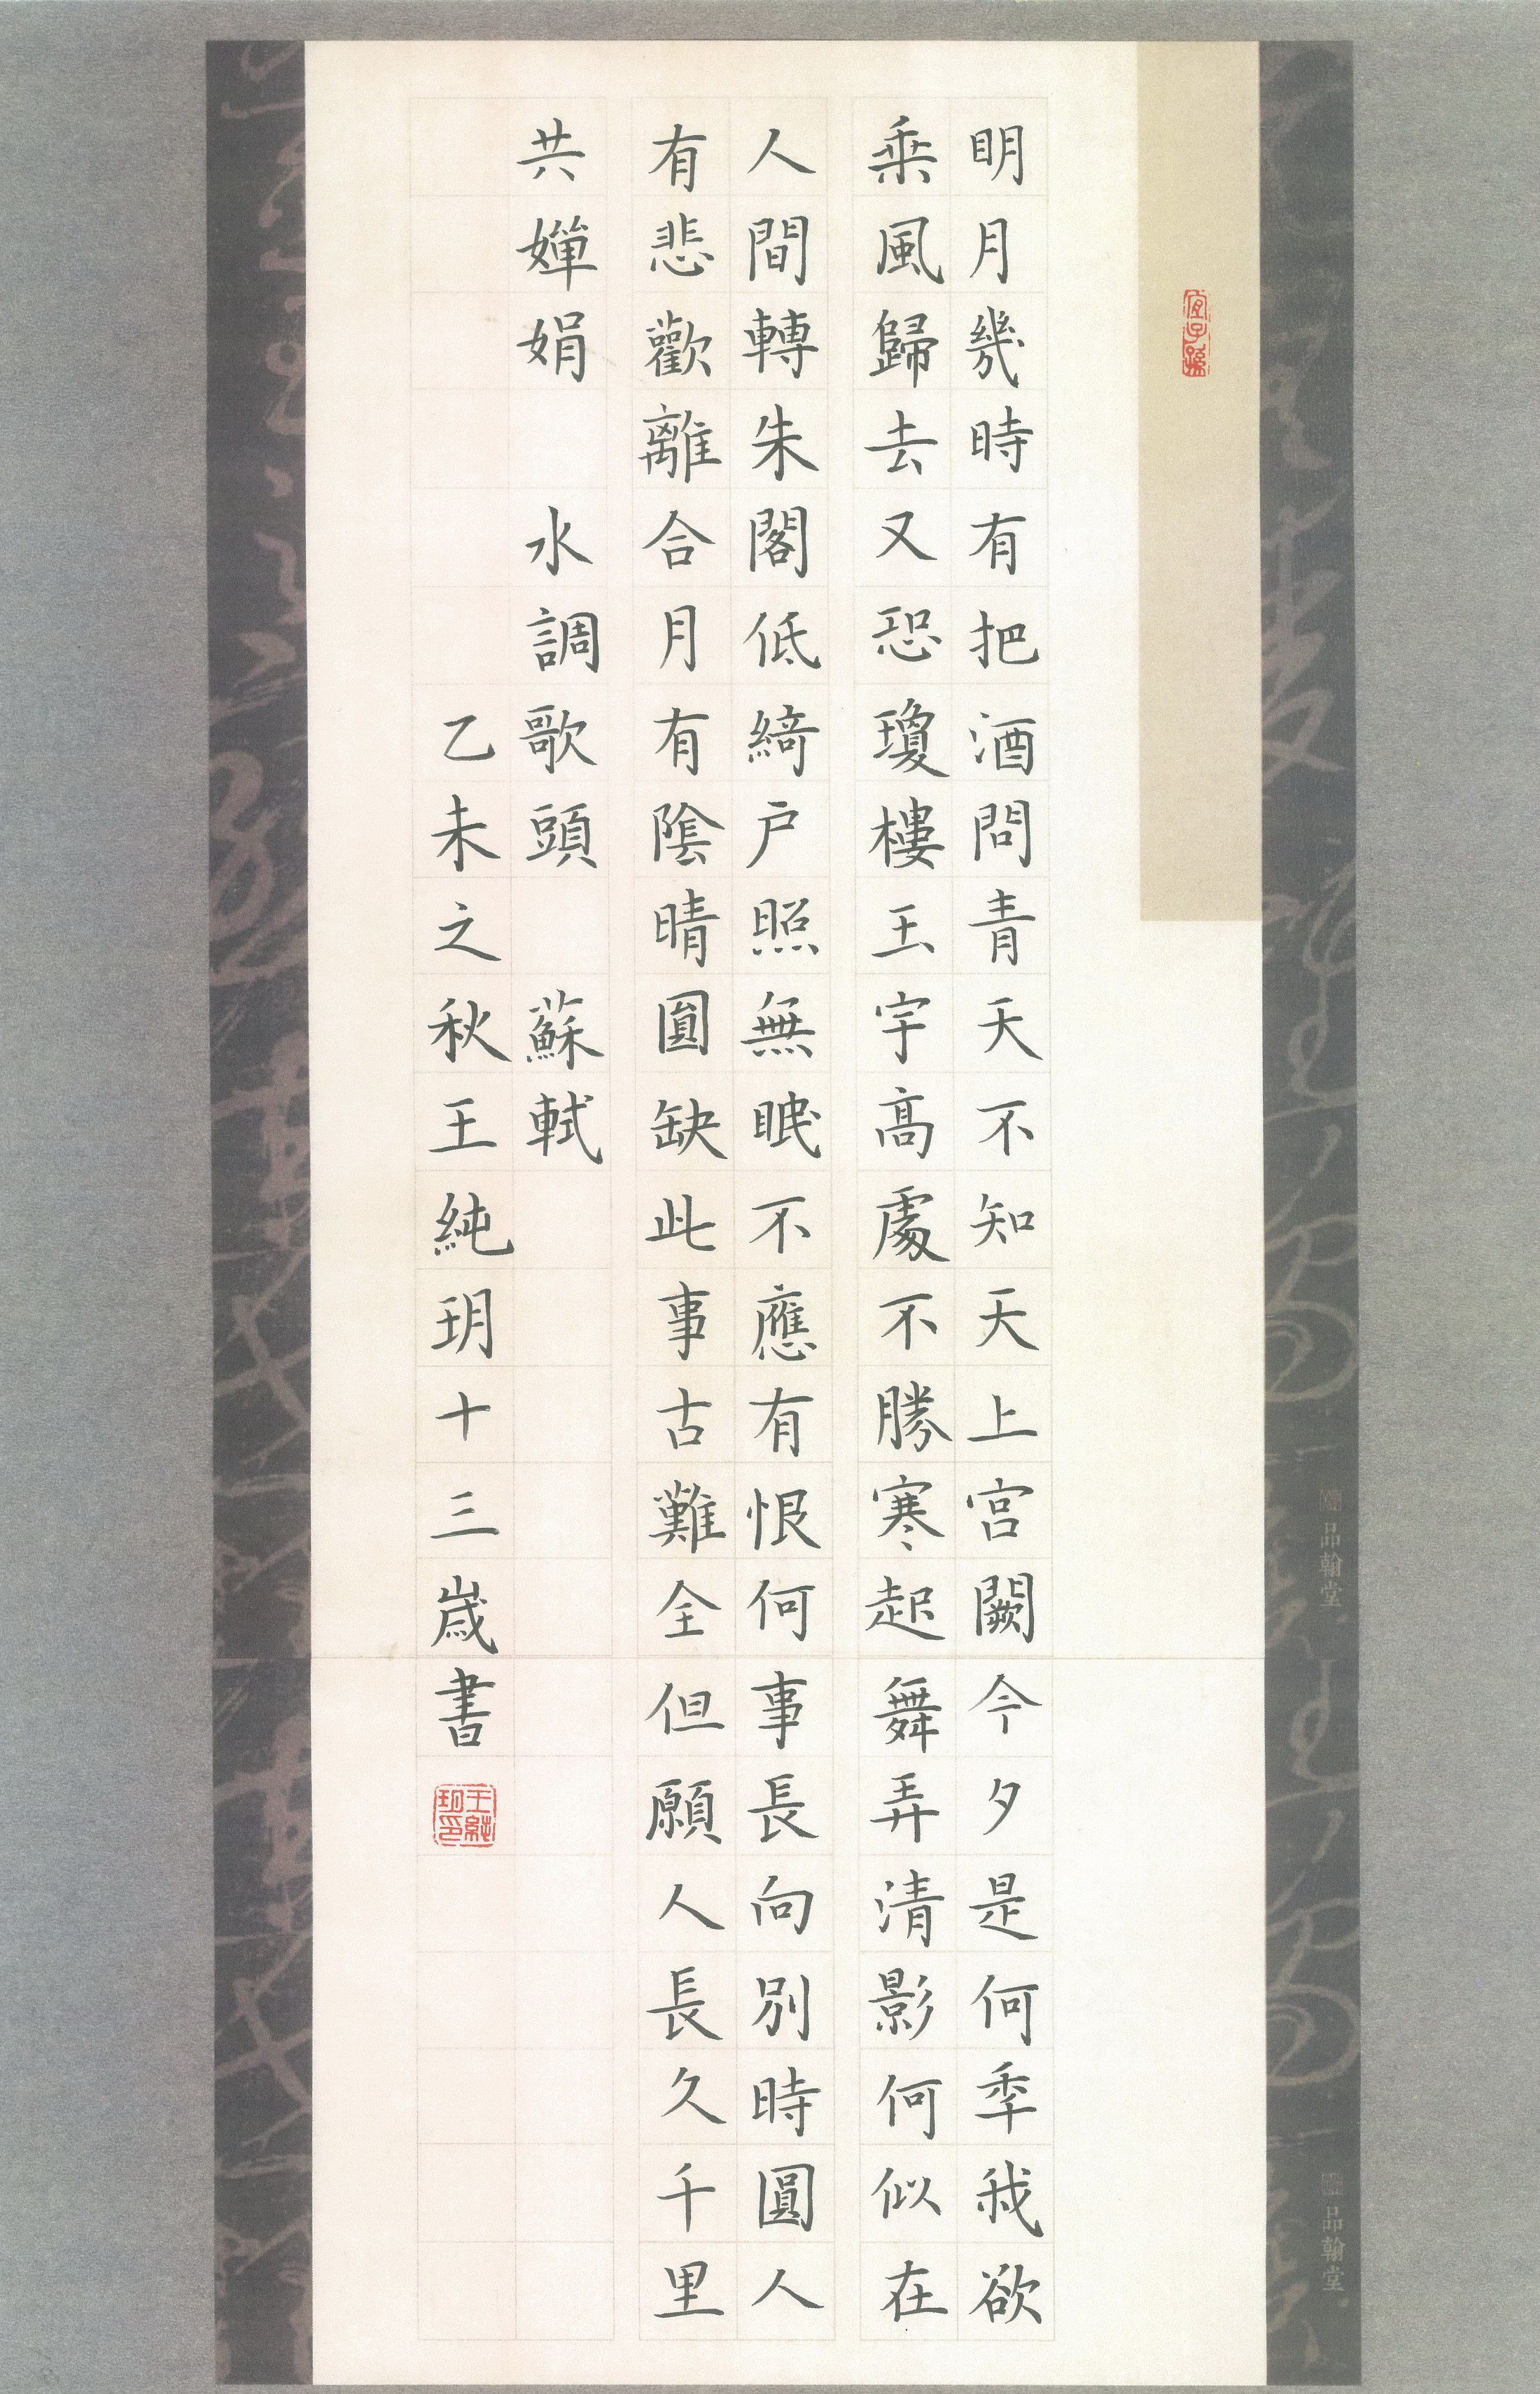 明月幾時有把酒問青天不知天上宫闕今夕是何季我欲
乘風歸去又恐瓊樓玉宇高處不勝寒起舞弄清影何似在
人間轉朱閣低綺户照無眠不應有恨何事長向別時圓人
有悲歡離合月有陰晴圓缺此事古難全但願人長久千里
共嬋娟 水調歌頭 蘇軾
乙未之秋王純玥十三歲書
王純玥印
宜子孫
品翰堂
品翰堂